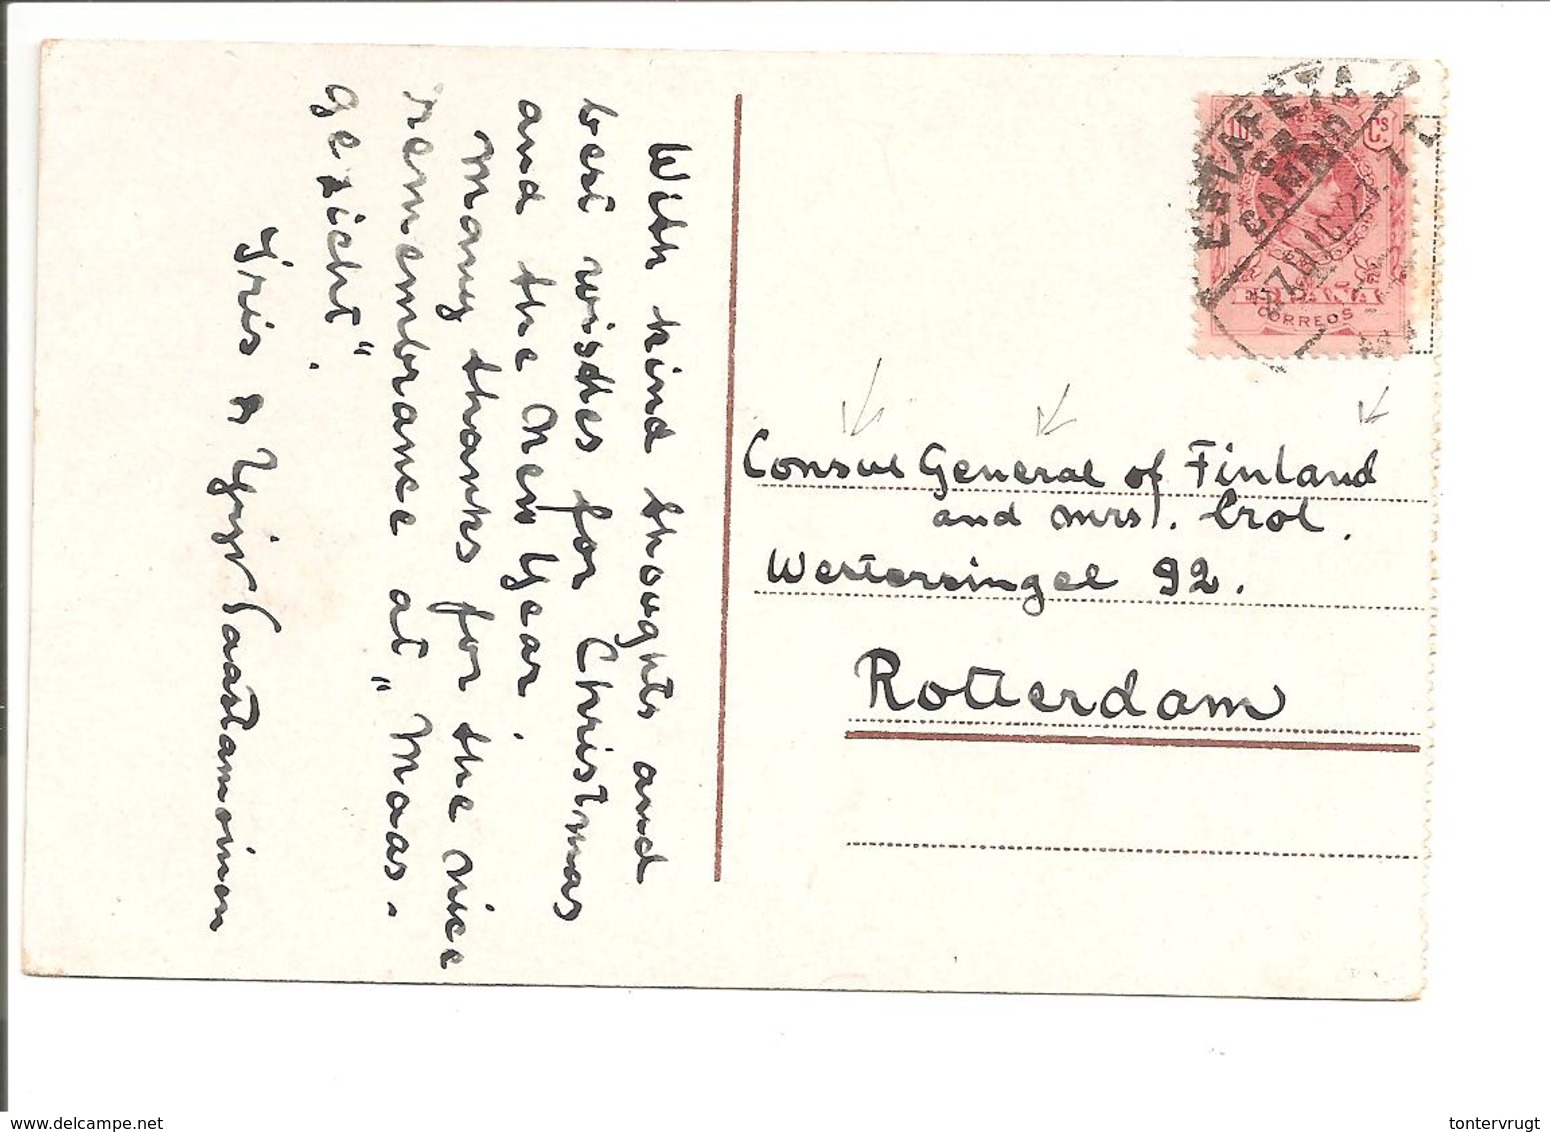 With kind thoughts and
best wishes for Christmas
and the New Year.
Many thanks for the nice
remembrance at "Maas-
gezicht".
Yrjö Saastamoinen
Consul General of Finland
and mrs. Crol.
Westersingel 92.
Rotterdam
10 Cs
ESPAÑA
CORREOS
ESTAFETA
DE
CAMBIO
delcampe.net
tontervrugt